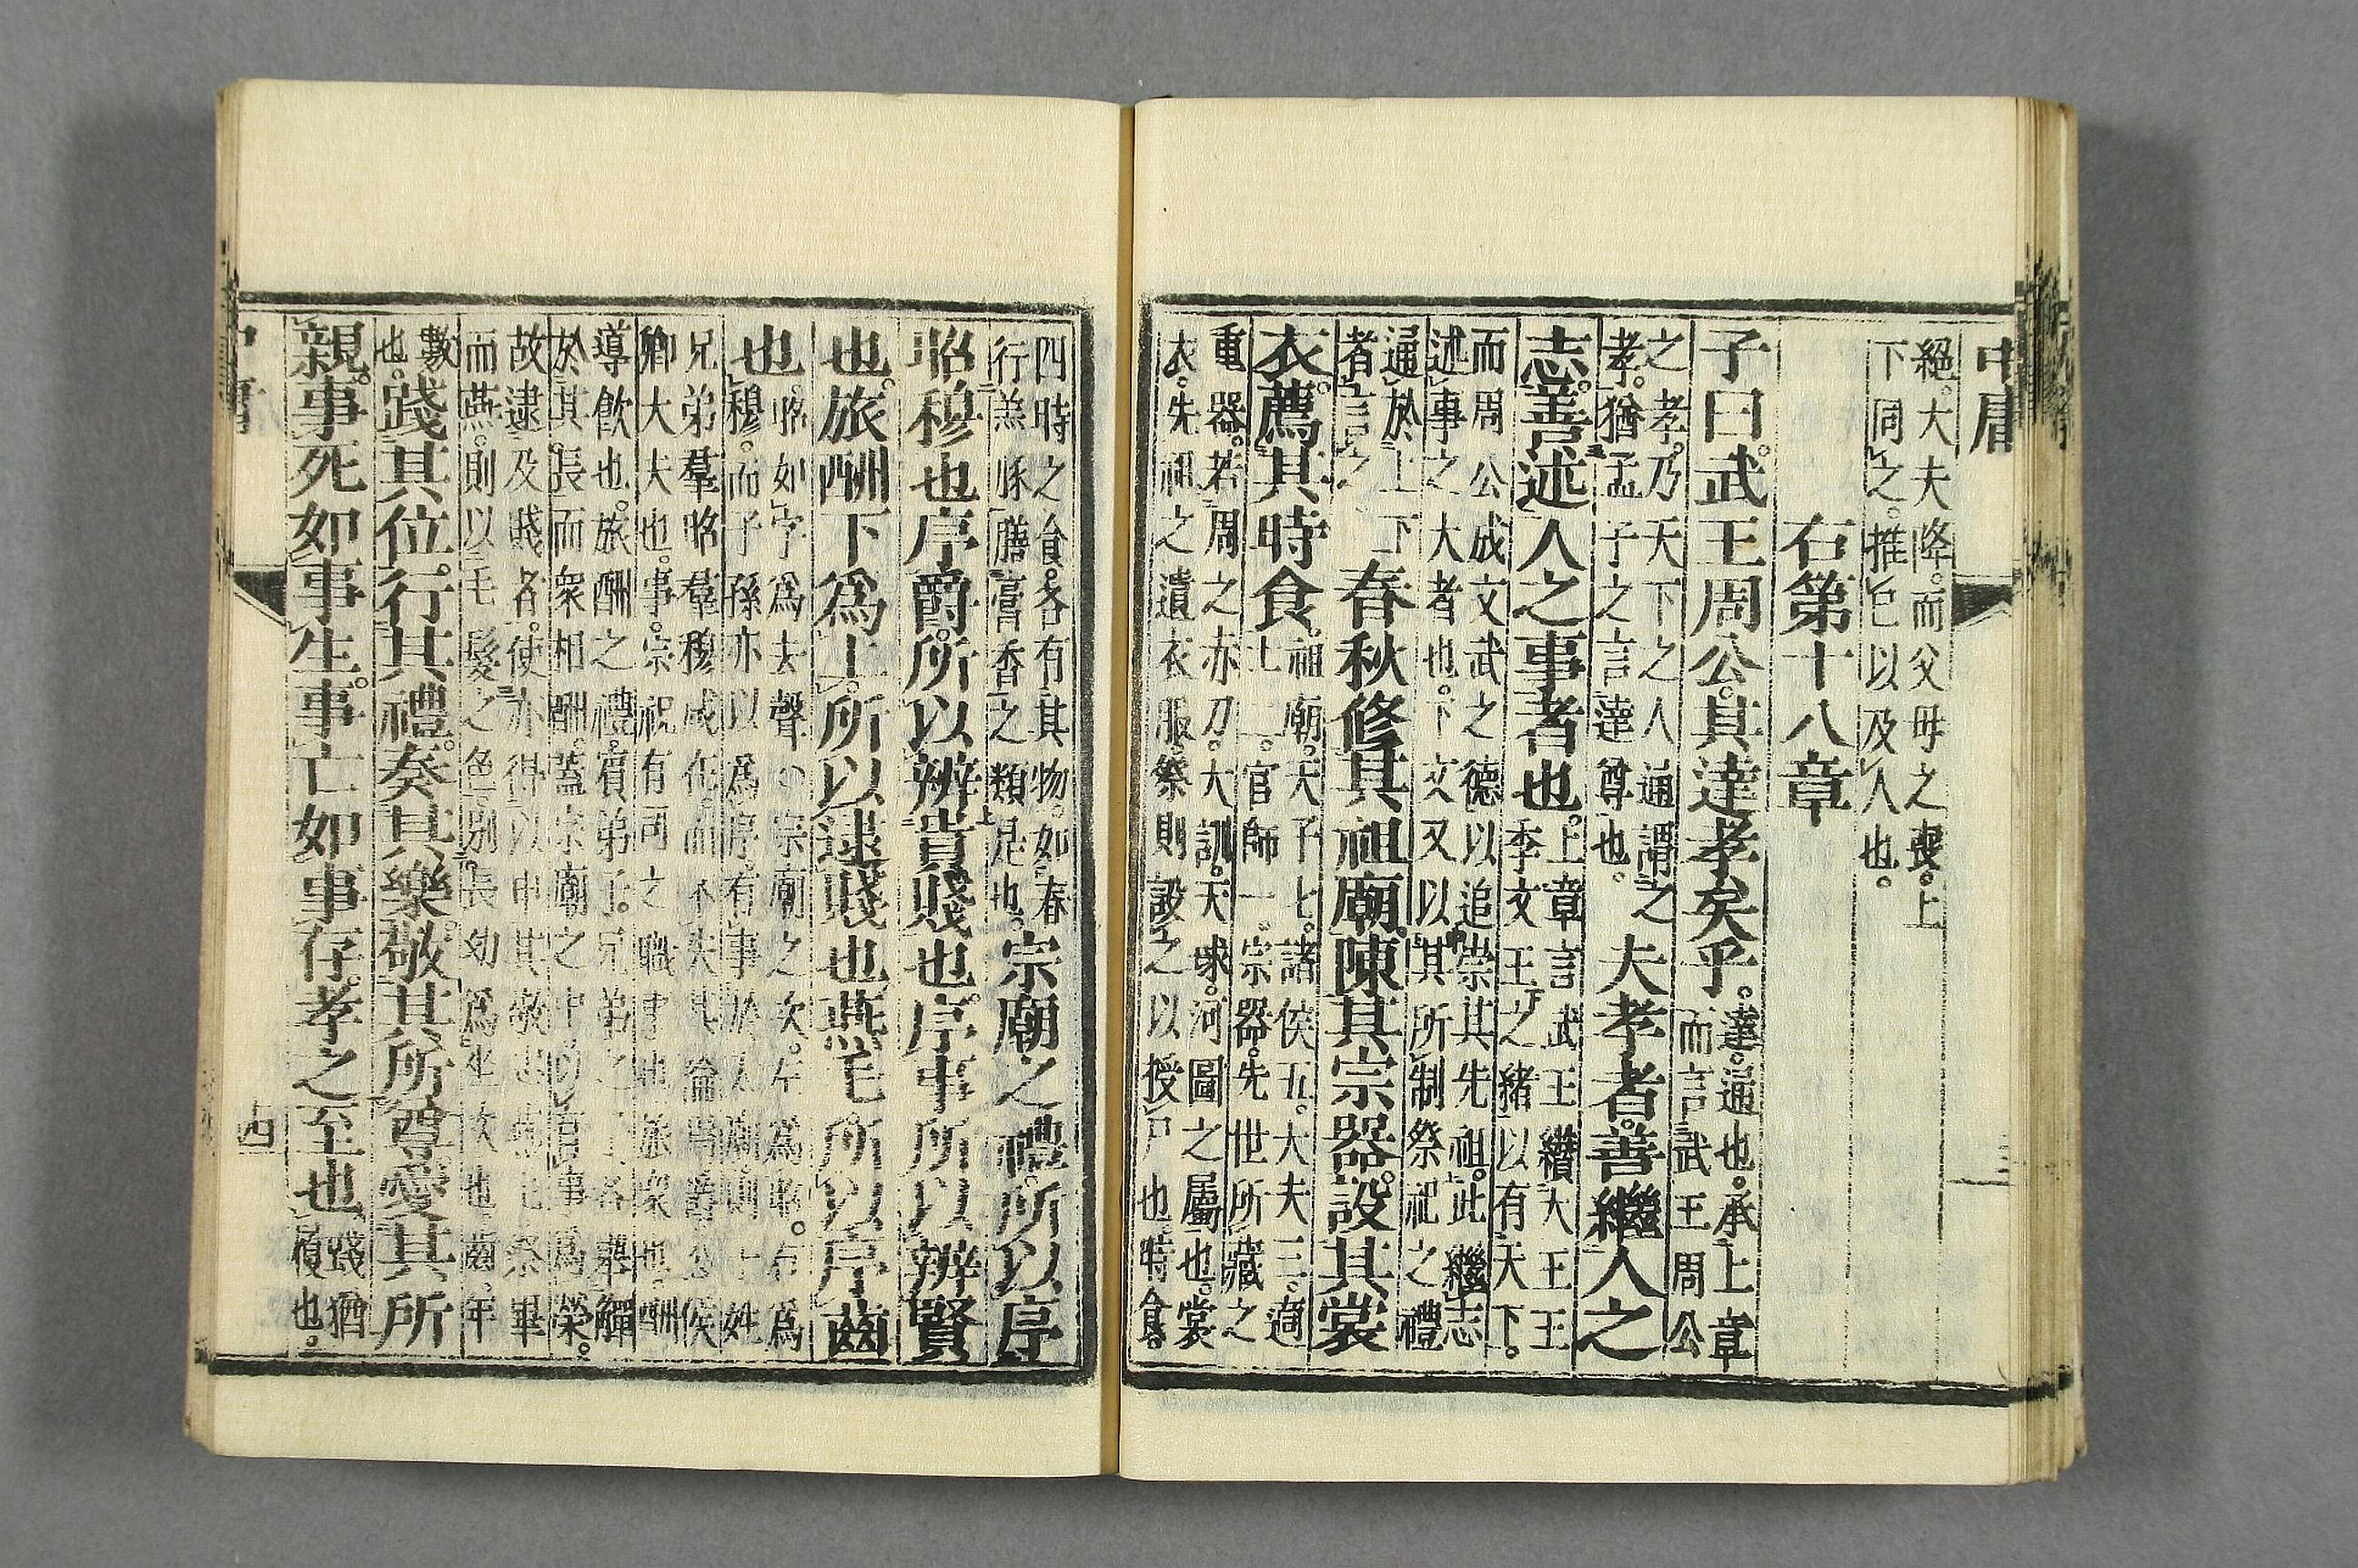 中庸
絕。大夫降。而父母之喪。上
下同之。推已以及人也。
右第十八章
子曰。武王周公。其達孝矣乎。達。通也。承上章
而言武王周公
之孝。乃天下之人通謂之
孝。猶孟子之言達尊也。夫孝者。善繼人之
志。善述人之事者也。上章言武王纘大王王
季文王之緒以有天下。
而周公成文武之德以追崇其先祖。此繼志
述事之大者也。下文又以其所制祭祀之禮
通於上下
者言之春秋修其祖廟。陳其宗器。設其裳
衣。薦其時食。祖廟。天子七。諸侯五。大夫三。適
士二。官師一。宗器。先世所藏之
重器。若周之赤刀。大訓。天球。河圖之屬也。裳
衣。先祖之遺衣服。祭則設之以授尸也。時食。
四時之食。各有其物。如春
行羔豚膳膏香之類是也。宗廟之禮。所以序
昭穆也。序爵。所以辨貴賤也。序事。所以辨賢
也。旅酬下爲上。所以逮賤也。燕毛。所以序齒
也。昭如字。爲去聲○宗廟之次。左爲昭。右爲
穆。而子孫亦以爲序。有事於太廟。則子姓
兄弟羣昭羣穆咸在。而不失其倫焉。爵公侯
卿大夫也。事。宗祝有司之職事也。旅衆也。酬
導飲也。旅酬之禮。賓弟子。兄弟之子。各舉觶
於其長而衆相酬。蓋宗廟之中以有事爲榮。
故逮及賤者。使亦得以申其敬也。燕毛祭畢
而燕。則以毛髮之色別長幼。爲坐次也。齒。年
數
也。踐其位。行其禮。奏其樂。敬其所尊。愛其所
親。事死如事生。事亡如事存。孝之至也。踐猶
履也。
十四